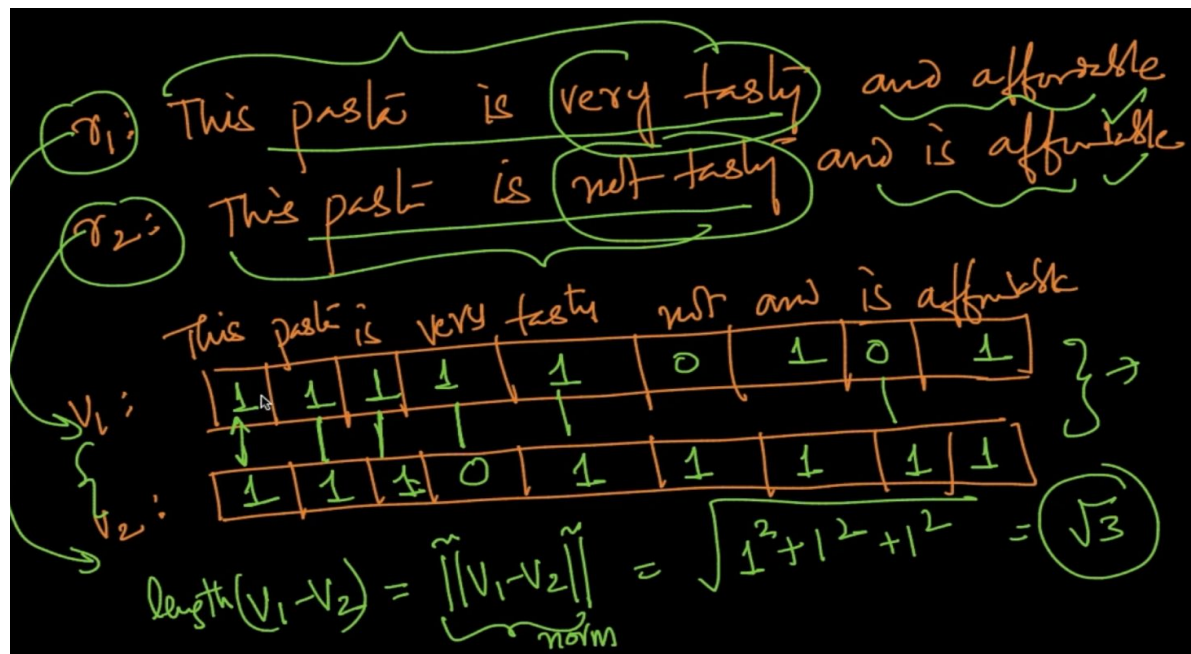 r₁: This pasta is very tasty and affordable
r₂: This pasta is not tasty and is affordable
This pasta is very tasty not and is affordable
v₁: 1 1 1 1 1 0 1 0 1
v₂: 1 1 1 0 1 1 1 1 1
length(v₁-v₂) = ||v₁-v₂|| = √(1²+1²+1²) = √3
norm